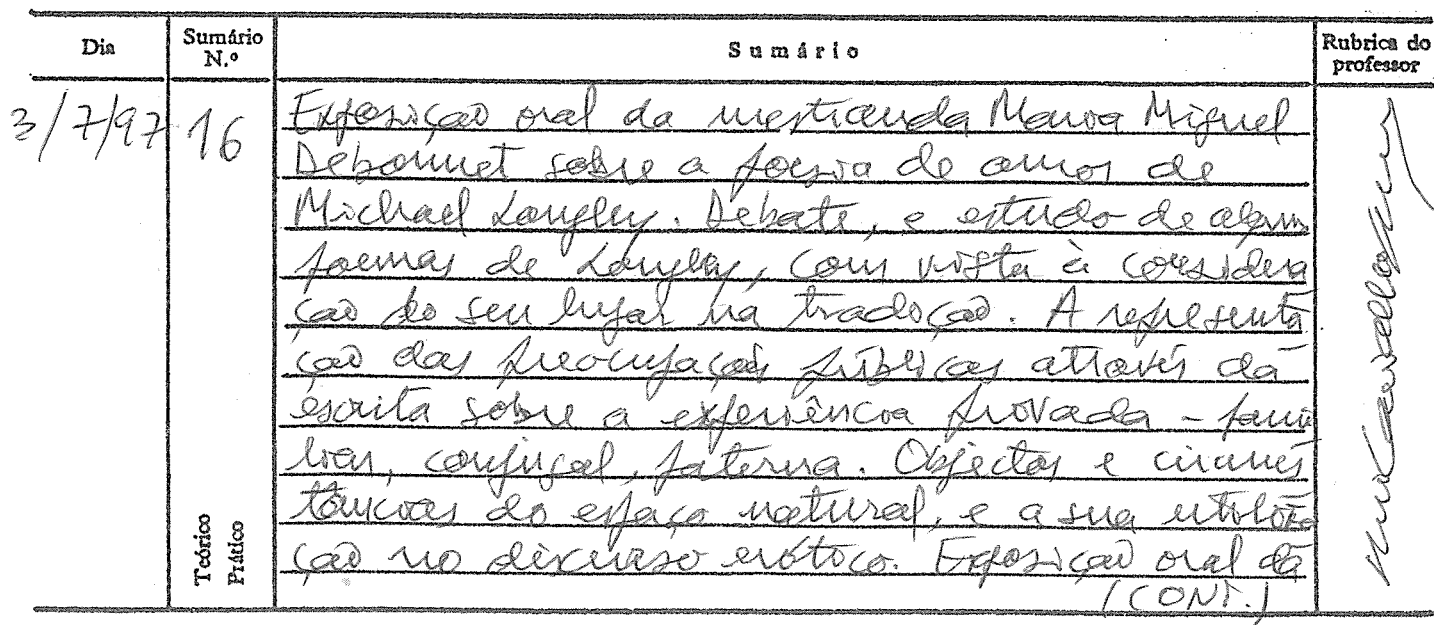 Dia Sumário N.º Sumário Rubrica do professor
3/7/97 16
Exposição oral da mestranda Maria Miguel
Debonnet sobre a poesia de amor de
Michael Longley. Debate, e estudo de alguns
poemas de Longley, com vista à considera
ção do seu lugar na tradição. A representa
ção das preocupações públicas através da
escrita sobre a experiência privada - fami
liar, conjugal, paterna. Objectos e circuns
tâncias do espaço natural, e a sua utiliza
ção no discurso erótico. Exposição oral da
(CONT.)
Teórico
Prático